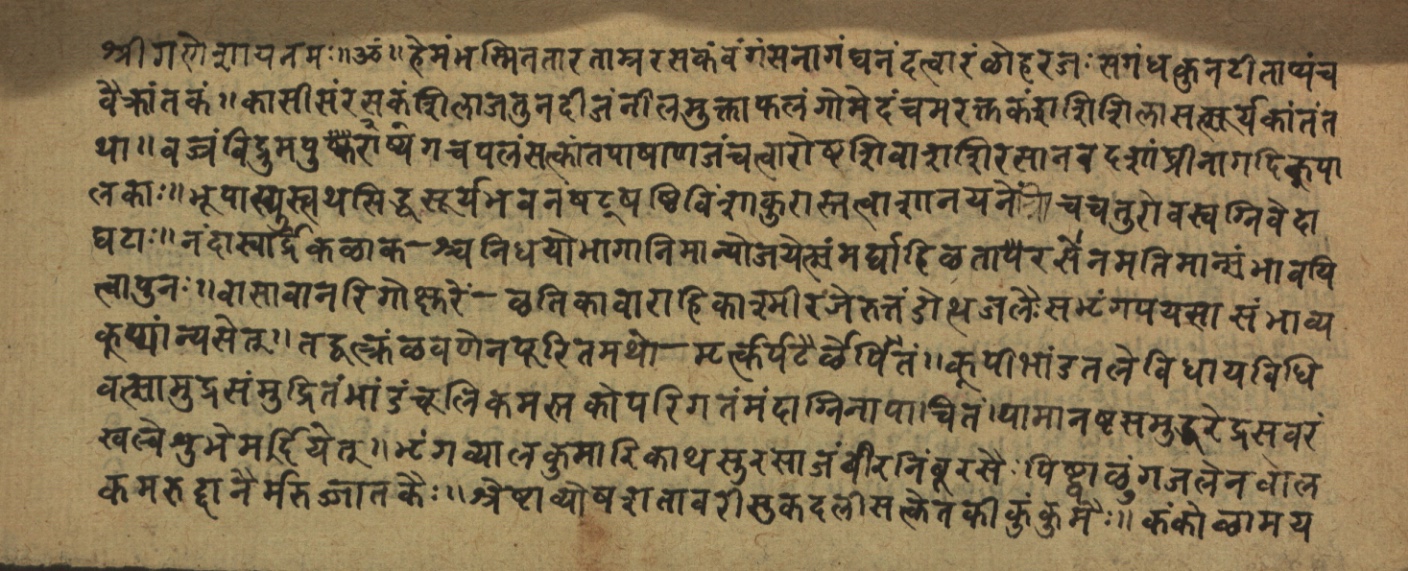 श्रीगणेशायनमः॥ॐ॥हेमंभस्मिनतारताम्ररसकंवंगंसनागंघनंदत्वारंळोहरजःसगंधकुनटीताप्यंच
वैक्रांतकं॥कासीसंरसकंशिलाजतुनदीजंनीलमुक्ताफलंगोमेदंचमरक्तकंशशिशिलासत्सूर्यकांतंत
था॥वज्रंविद्रुमपुष्करौष्यगचपलंसत्कांतपाषाणजंचत्वारोष्टशिवाशशिरसानवदशांघ्रीनागदिकूपा
लकाः॥भूपास्युस्त्वथसिद्धसूर्यभवनंषट्षष्ठिविंशाकुरास्तत्वाशानयनेचचतुरोवस्वग्निवेदा
घटाः॥नंदास्वार्द्रिकळाकश्चनिधयोभागानिमान्योजयेत्खंमर्घाहिळतापयैरसेंनमतिमान्खंभावयि
त्वापुनः॥वासावानरिगोक्षुरेंळतिकावाराहिकाश्मीरजेरुत्तंडोत्थजलैःसभृंगपयसासंभाव्य
कूप्यांन्यसेत्॥तद्वत्क्तंळवणेनपूरितमथोमृत्कर्पटैर्ळेपितं॥कूपीभांडतलेविधायविधि
वत्खामुद्रसंमुद्रितंभांडंचूलिकमस्तकोपरिगतंमंदाग्निनापाचितं।यामानष्टसमुद्धरेद्रसवरं
खल्वेशुभेमर्दियेत्॥भृंगव्यालकुमारिकाथसुरसाजंबीरनिंबूरसैःपिष्ट्वाळुंगजलेनवाल
कमरुद्दानैर्मरुज्जातकैः॥श्रेष्टाव्योषशतावरीसुकदलीसत्केतकीकुंकुमैः॥कंकोळामय